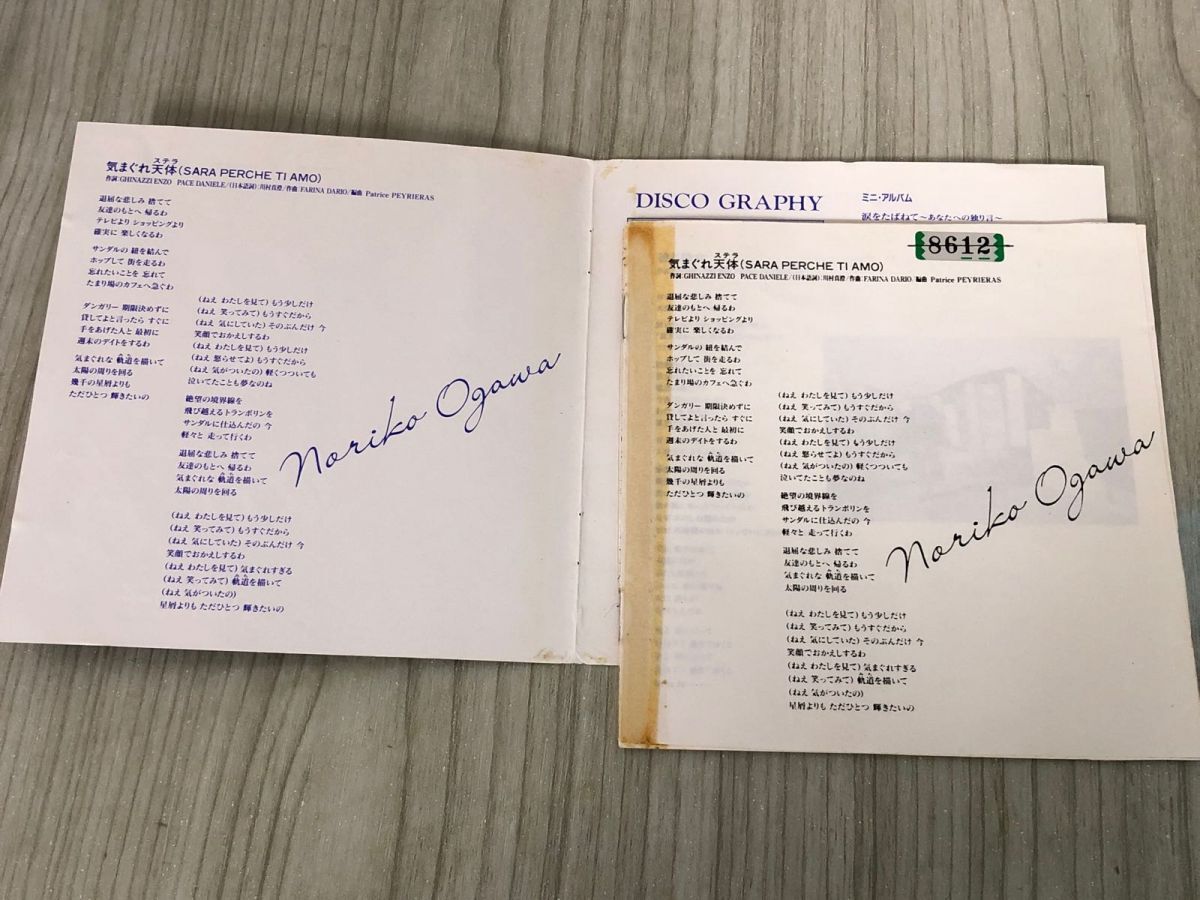 ステラ
気まぐれ天体(SARA PERCHE TI AMO)
作詞:GHINAZZI ENZO PACE DANIELE/(日本語詞):川村真澄/作曲:FARINA DARIO/編曲 Patrice PEYRIERAS
退屈な悲しみ 捨てて
友達のもとへ 帰るわ
テレビより ショッピングより
確実に 楽しくなるわ
サンダルの 紐を結んで
ホップして 街を走るわ
忘れたいことを 忘れて
たまり場のカフェへ急ぐわ
ダンガリー 期限決めずに
貸してよと言ったら すぐに
手をあげた人と 最初に
週末のデイトをするわ
気まぐれな 軌道を描いて
太陽の周りを回る
幾千の星屑よりも
ただひとつ 輝きたいの
(ねえ わたしを見て) もう少しだけ
(ねえ 笑ってみて) もうすぐだから
(ねえ 気にしていた) そのぶんだけ 今
笑顔でおかえしするわ
(ねえ わたしを見て) もう少しだけ
(ねえ 怒らせてよ) もうすぐだから
(ねえ 気がついたの) 軽くつついても
泣いてたことも夢なのね
絶望の境界線を
飛び越えるトランポリンを
サンダルに仕込んだの 今
軽々と 走って行くわ
退屈な悲しみ 捨てて
友達のもとへ 帰るわ
気まぐれな 軌道を描いて
太陽の周りを回る
(ねえ わたしを見て) もう少しだけ
(ねえ 笑ってみて) もうすぐだから
(ねえ 気にしていた) そのぶんだけ 今
笑顔でおかえしするわ
(ねえ わたしを見て) 気まぐれすぎる
(ねえ 笑ってみて) 軌道を描いて
(ねえ 気がついたの)
星屑よりも ただひとつ 輝きたいの
Noriko Ogawa
DISCO GRAPHY
ミニ・アルバム
涙をたばねて~あなたへの独り言~
8612
ステラ
気まぐれ天体(SARA PERCHE TI AMO)
作詞:GHINAZZI ENZO PACE DANIELE/(日本語詞):川村真澄/作曲:FARINA DARIO/編曲 Patrice PEYRIERAS
退屈な悲しみ 捨てて
友達のもとへ 帰るわ
テレビより ショッピングより
確実に 楽しくなるわ
サンダルの 紐を結んで
ホップして 街を走るわ
忘れたいことを 忘れて
たまり場のカフェへ急ぐわ
ダンガリー 期限決めずに
貸してよと言ったら すぐに
手をあげた人と 最初に
週末のデイトをするわ
気まぐれな 軌道を描いて
太陽の周りを回る
幾千の星屑よりも
ただひとつ 輝きたいの
(ねえ わたしを見て) もう少しだけ
(ねえ 笑ってみて) もうすぐだから
(ねえ 気にしていた) そのぶんだけ 今
笑顔でおかえしするわ
(ねえ わたしを見て) もう少しだけ
(ねえ 怒らせてよ) もうすぐだから
(ねえ 気がついたの) 軽くつついても
泣いてたことも夢なのね
絶望の境界線を
飛び越えるトランポリンを
サンダルに仕込んだの 今
軽々と 走って行くわ
退屈な悲しみ 捨てて
友達のもとへ 帰るわ
気まぐれな 軌道を描いて
太陽の周りを回る
(ねえ わたしを見て) もう少しだけ
(ねえ 笑ってみて) もうすぐだから
(ねえ 気にしていた) そのぶんだけ 今
笑顔でおかえしするわ
(ねえ わたしを見て) 気まぐれすぎる
(ねえ 笑ってみて) 軌道を描いて
(ねえ 気がついたの)
星屑よりも ただひとつ 輝きたいの
Noriko Ogawa